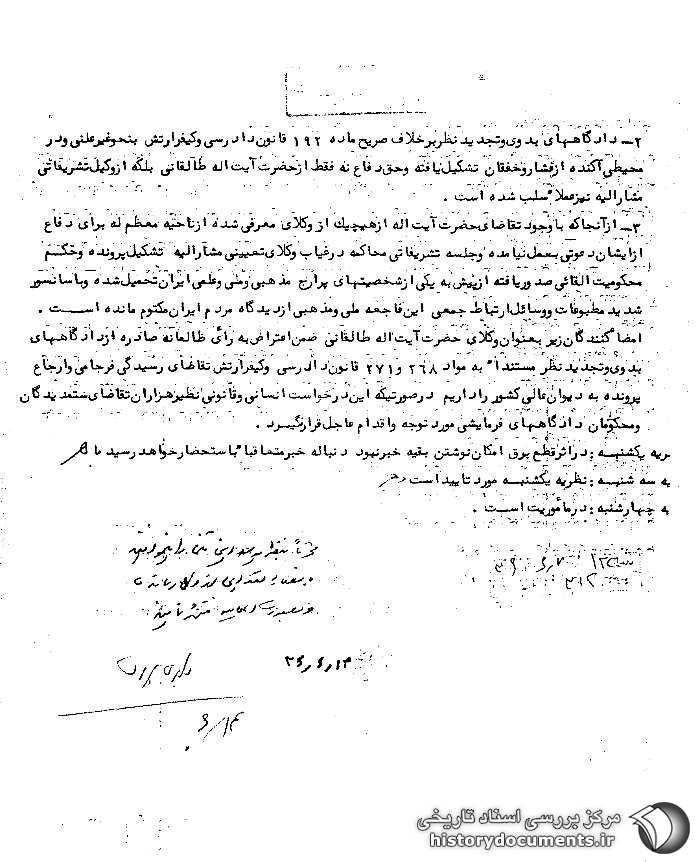 ۲ـ دادگاههای بدوی و تجدید نظر برخلاف صریح ماده ۱۹۲ قانون دادرسی و کیفر ارتش بنحو غیر علنی و در
محیطی آکنده از فشار و خفقان تشکیل یافته و حق دفاع نه فقط از حضرت آیت اله طالقانی بلکه از وکیل تشریفاتی
مشارالیه نیز عملا" سلب شده است .
۳ـ از آنجا که با وجود تقاضای حضرت آیت اله از هیچیک از وکلای معرفی شده از ناحیه معظم له برای دفاع
از ایشان دعوتی بعمل نیامده و جلسه تشریفاتی محاکمه در غیاب وکلای تعیینی مشارالیه تشکیل پرونده و حکم
محکومیت القائی صدور یافته از پیش به یکی از شخصیتهای پرارج مذهبی و ملی و علمی ایران تحمیل شده و با سانسور
شدید مطبوعات و وسائل ارتباط جمعی این فاجعه ملی و مذهبی از دیدگاه مردم ایران مکتوم مانده است .
امضا کنندگان زیر بعنوان وکلای حضرت آیت اله طالقانی ضمن اعتراض به رأی ظالمانه صادره از دادگاههای
بدوی و تجدید نظر مستندا" به مواد ۲۶۸ و ۲۷۱ قانون دادرسی و کیفر ارتش تقاضای رسیدگی فرجامی و ارجاع
پرونده به دیوان عالی کشور را داریم در صورتیکه این درخواست انسانی و قانونی نظیر هزاران تقاضای ستمدیدگان
و محکومان دادگاههای فرمایشی مورد توجه و اقدام عاجل قرار نگیرد .
ریه یکشنبه : در اثر قطع برق امکان نوشتن بقیه خبر نبود دنباله خبر متعاقبا" باستحضار خواهد رسید
یه سه شنبه : نظریه یکشنبه مورد تایید است
یه چهارشنبه : در مأموریت است .
۳۶٫۶٫۱۳
۶/۱۴
مرکز بررسی اسناد تاریخی
historydocuments.ir